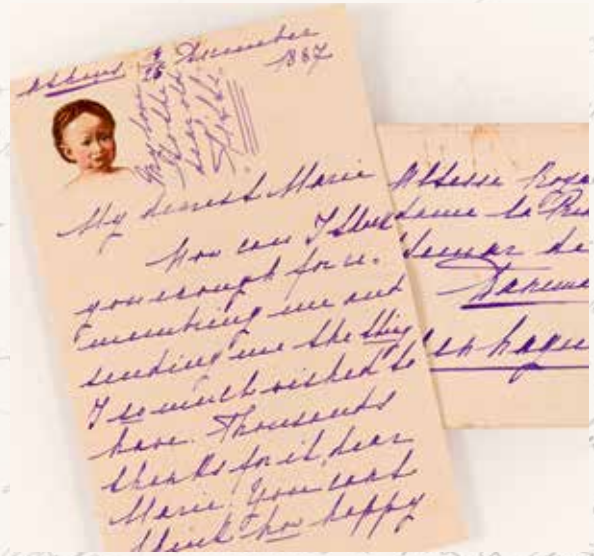 Athens 4/16 December
1887
My love
to the
dear old
My dearest Marie
how can I thank
you enough for re-
membring me and
sending me the thing
I so much wished to
have. Thousands
thanks for it, dear
Marie. You cant
think how happy
Altesse Roya
dame la Prin
demar de
Danema
enhague